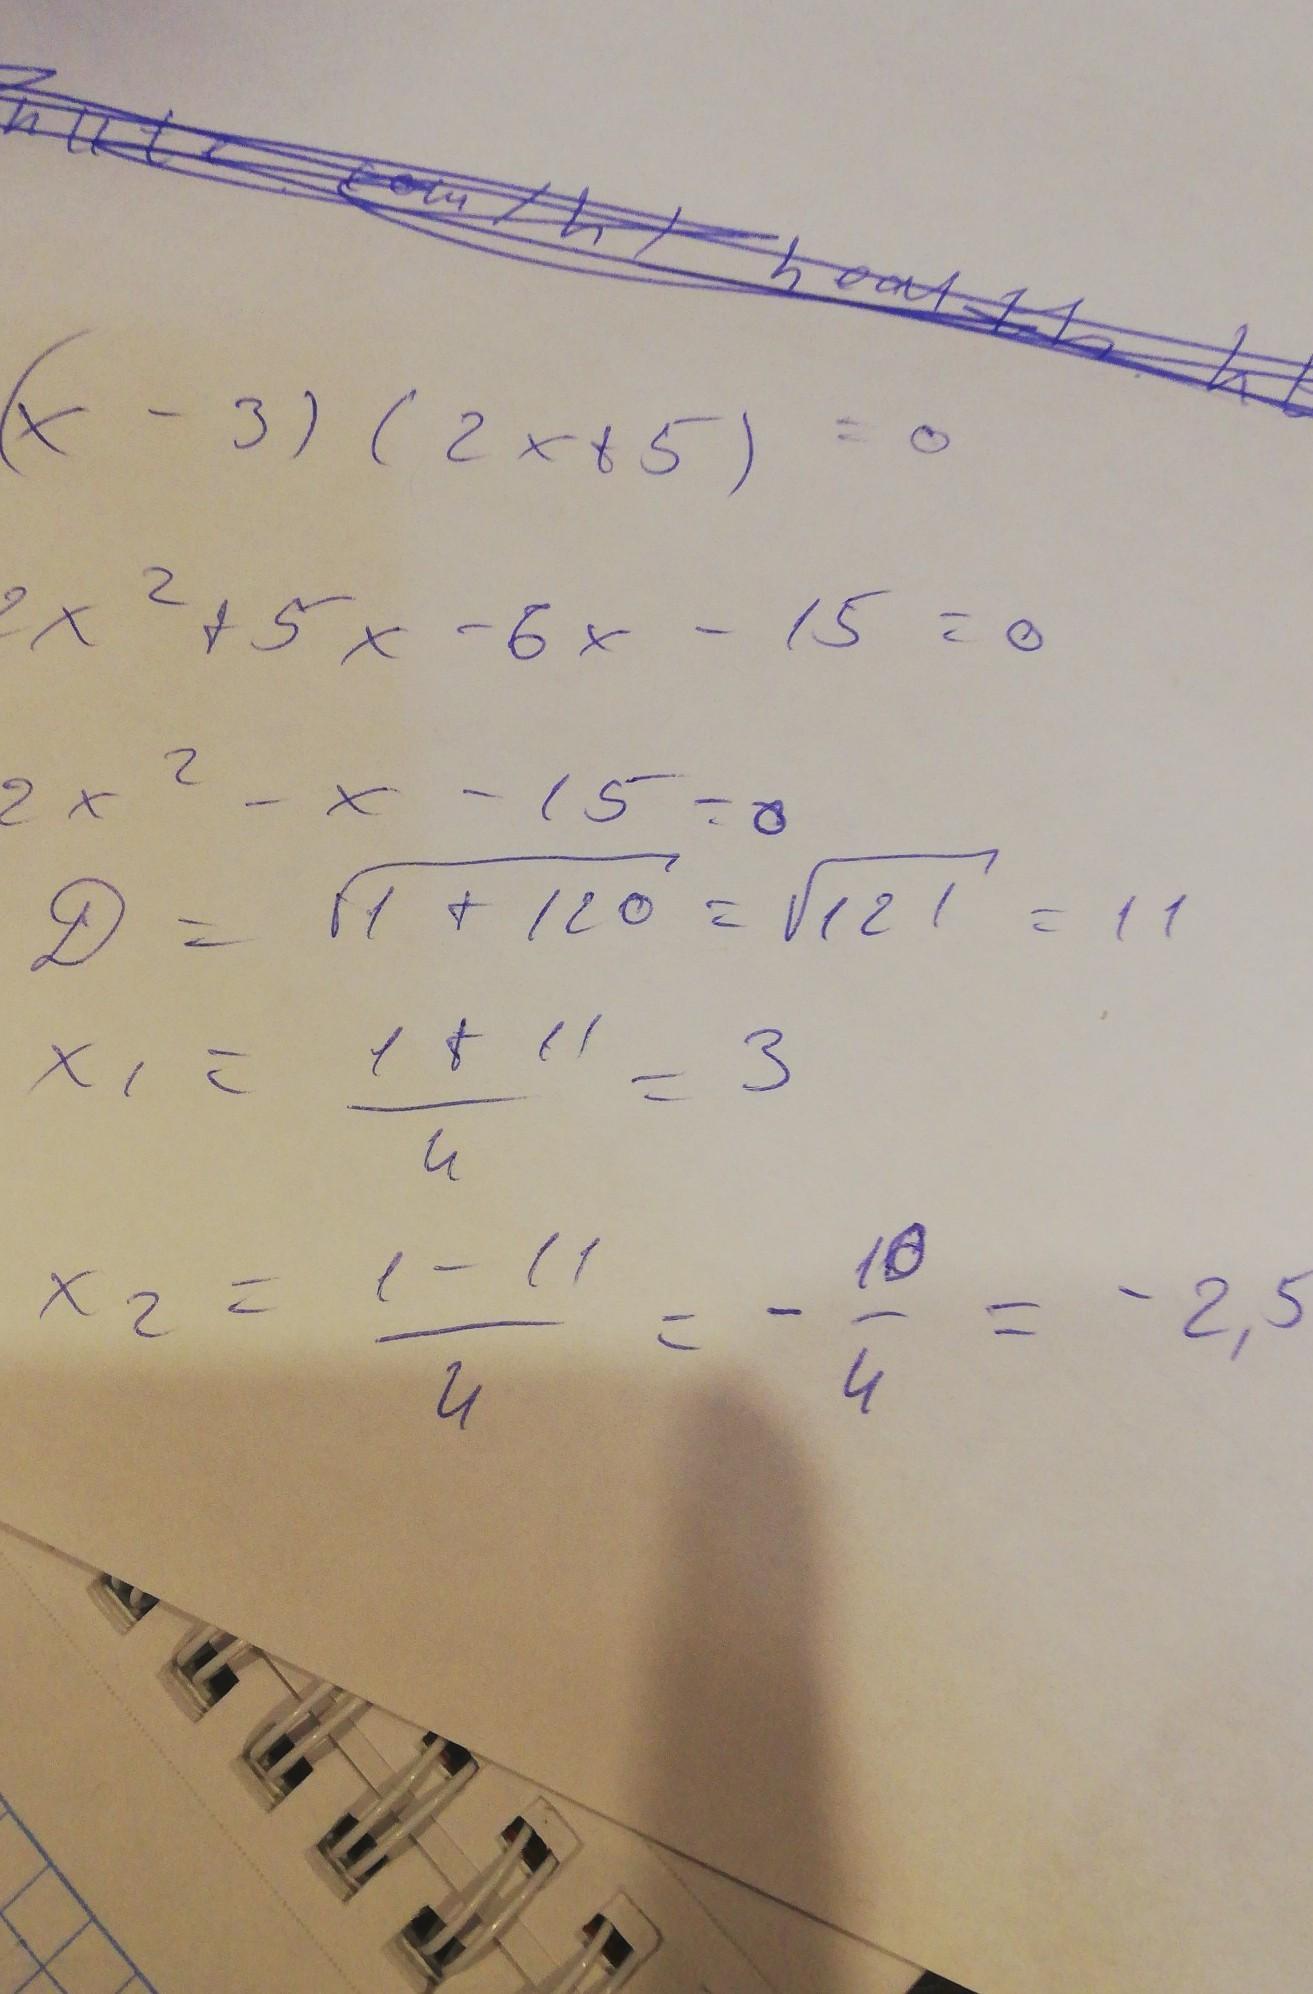 (x - 3) (2x+5) = 0
2x² + 5x - 6x - 15 = 0
2x² - x - 15 = 0
D = √1 + 120 = √121 = 11
x₁ = (1 + 11)/4 = 3
x₂ = (1 - 11)/4 = -10/4 = -2,5